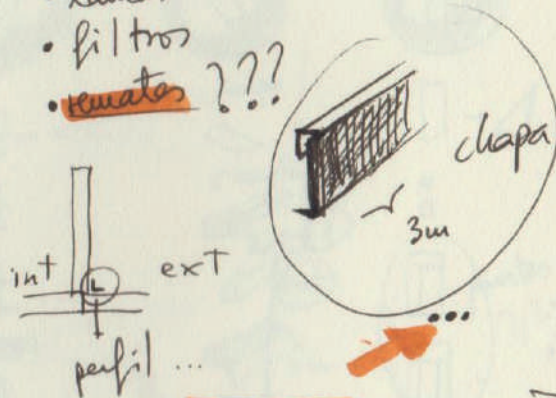 • filtros
• remates ???
chapa
3m
int ext
L
perfil ...
...